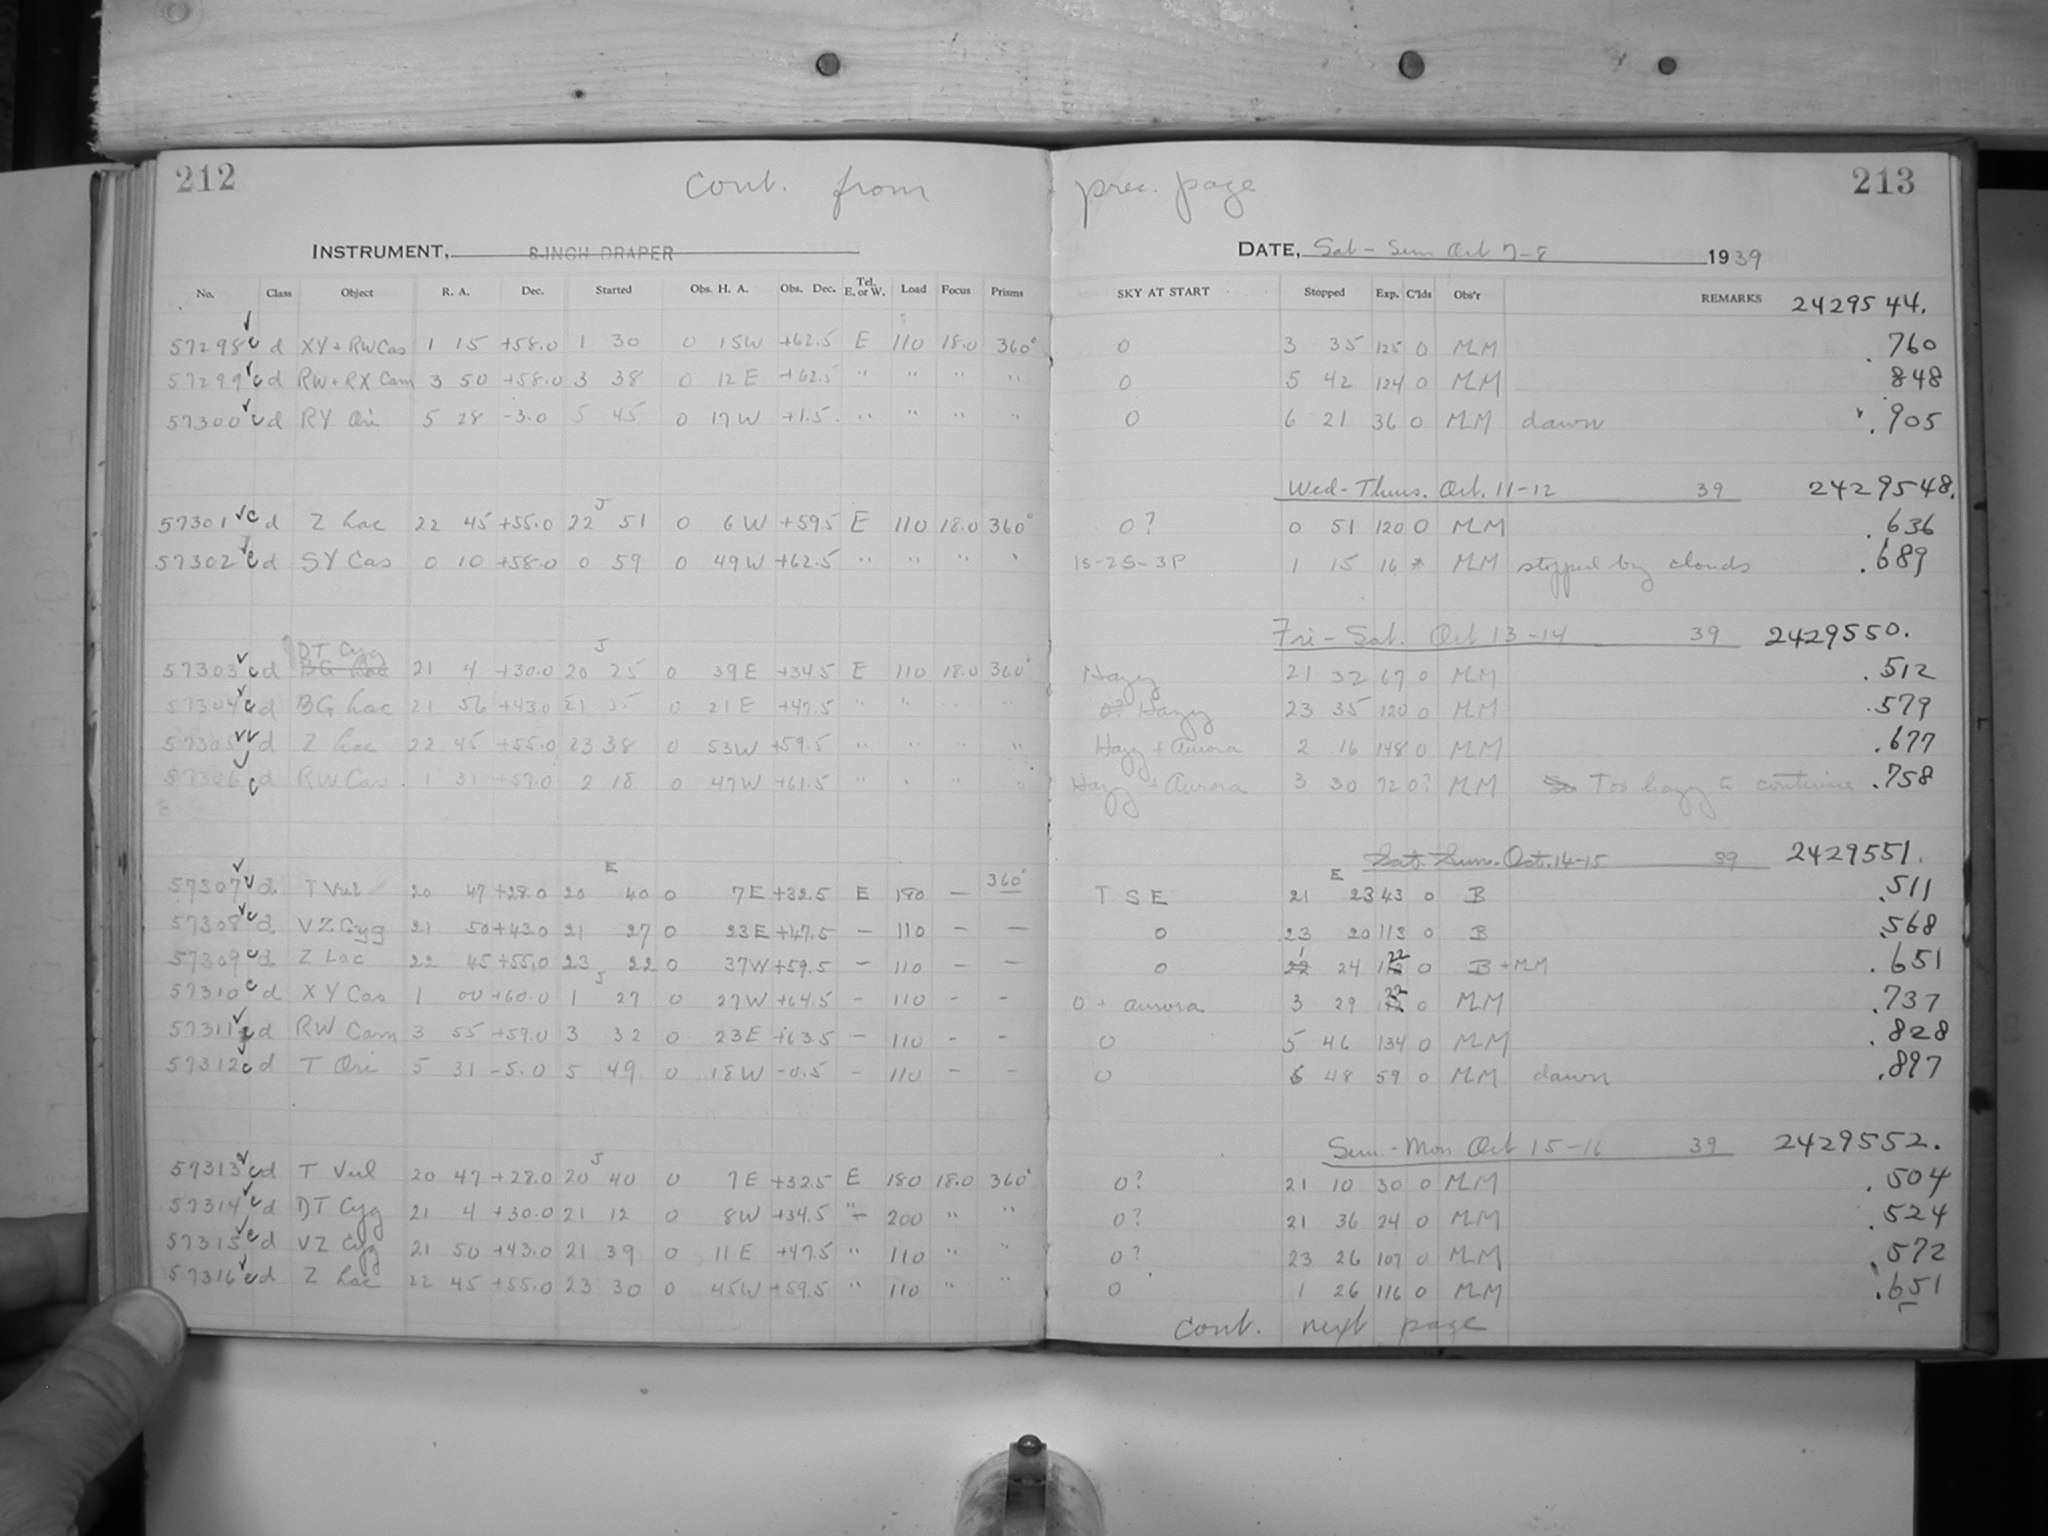 212 cont. from prec. page 213
INSTRUMENT, 8-INCH DRAPER DATE, Sat - Sun Oct 7-8 1939
No. Class Object R. A. Dec. Started Obs. H. A. Obs. Dec. Tel. E. or W. Load Focus Prisms SKY AT START Stopped Exp. C'lds Obs'r REMARKS 2429544.
57298 c d XY + RW Cas 1 15 +58.0 1 30 0 15W +62.5 E 110 18.0 360° 0 3 35 125 0 MM .760
57299 c d RW + RX Cam 3 50 +58.0 3 38 0 12E +62.5 " " " " 0 5 42 124 0 MM 848
57300 c d RY Ori 5 28 -3.0 5 45 0 17W +1.5 " " " " 0 6 21 36 0 MM dawn .905
Wed-Thurs. Oct. 11-12 39 2429548.
57301 c d Z Lac 22 45 +55.0 22 J 51 0 6W +59.5 E 110 18.0 360° 0? 0 51 120 0 MM .636
57302 c d SY Cas 0 10 +58.0 0 59 0 49W +62.5 " " " " 1S-2S-3P 1 15 16 * MM stopped by clouds .689
Fri - Sat. Oct 13-14 39 2429550.
DT Cyg
57303 c d BG Lac 21 4 +30.0 20 J 25 0 39E +34.5 E 110 18.0 360° Hazy 21 32 67 0 MM .512
57304 c d BG Lac 21 56 +43.0 21 35 0 21E +47.5 " " " " 0? Hazy 23 35 120 0 MM .579
57305 d Z Lac 22 45 +55.0 23 38 0 53W +59.5 " " " " Hazy + Aurora 2 16 148 0 MM .677
57306 c d RW Cas 1 31 +57.0 2 18 0 47W +61.5 " " " Hazy + Aurora 3 30 72 0? MM Too hazy to continue .758
Sat. Sun. Oct. 14-15 39 2429551.
57307 d T Vul 20 47 +28.0 20 E 40 0 7E +32.5 E 180 — 360° T S E 21 E 23 43 0 B .511
57308 c d VZ Cyg 21 50 +43.0 21 27 0 23E +47.5 — 110 — — 0 23 20 113 0 B .568
57309 c d Z Lac 22 45 +55.0 23 22 0 37W +59.5 — 110 — — 0 1 24 122 0 B + MM .651
57310 c d XY Cas 1 00 +60.0 1 J 27 0 27W +64.5 - 110 - - 0 + aurora 3 29 122 0 MM .737
57311 d RW Cam 3 55 +59.0 3 32 0 23E +63.5 — 110 - - 0 5 46 134 0 MM .828
57312 c d T Ori 5 31 -5.0 5 49 0 18W -0.5 - 110 - - 0 6 48 59 0 MM dawn .897
Sun - Mon Oct 15-16 39 2429552.
57313 c d T Vul 20 47 +28.0 20 J 40 0 7E +32.5 E 180 18.0 360° 0? 21 10 30 0 MM .504
57314 c d DT Cyg 21 4 +30.0 21 12 0 8W +34.5 " 200 " " 0? 21 36 24 0 MM .524
57315 c d VZ Cyg 21 50 +43.0 21 39 0 11E +47.5 " 110 " " 0? 23 26 107 0 MM .572
57316 c d Z Lac 22 45 +55.0 23 30 0 45W +59.5 " 110 " " 0 1 26 116 0 MM .651
cont. next page